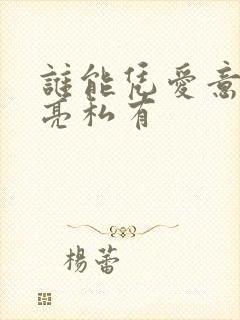 誰能凭愛意
亮私有
楊蕾